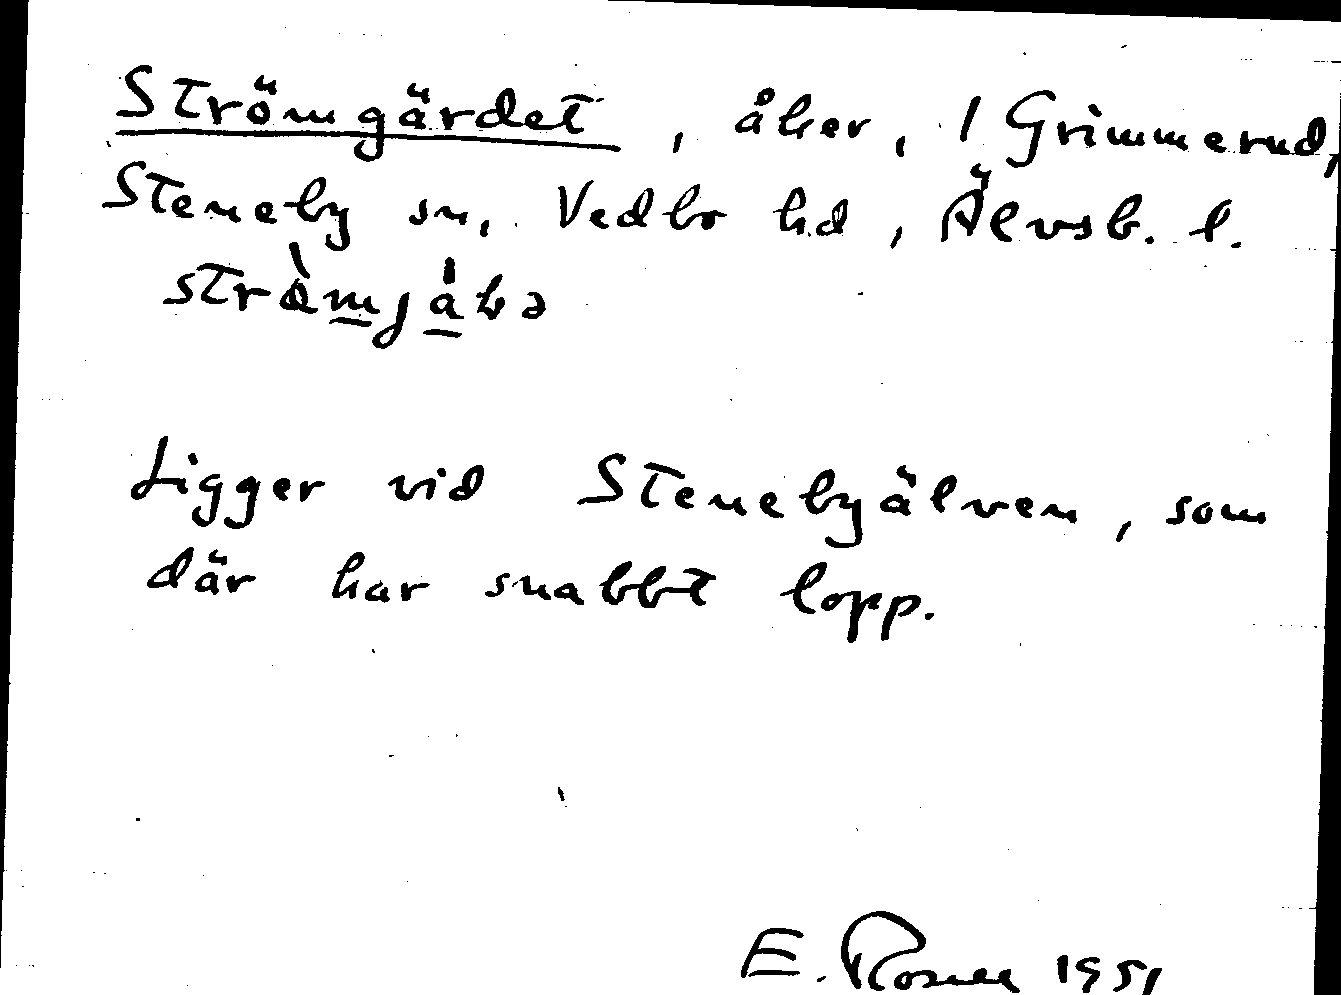 Strömgärdet, åker, 1 Grimmerud,
Steneby sn, Vedbo hd, Älvsb. l.
Ligger vid Stenebyälven, som
där har snabbt lopp.
E. Rosell 1951